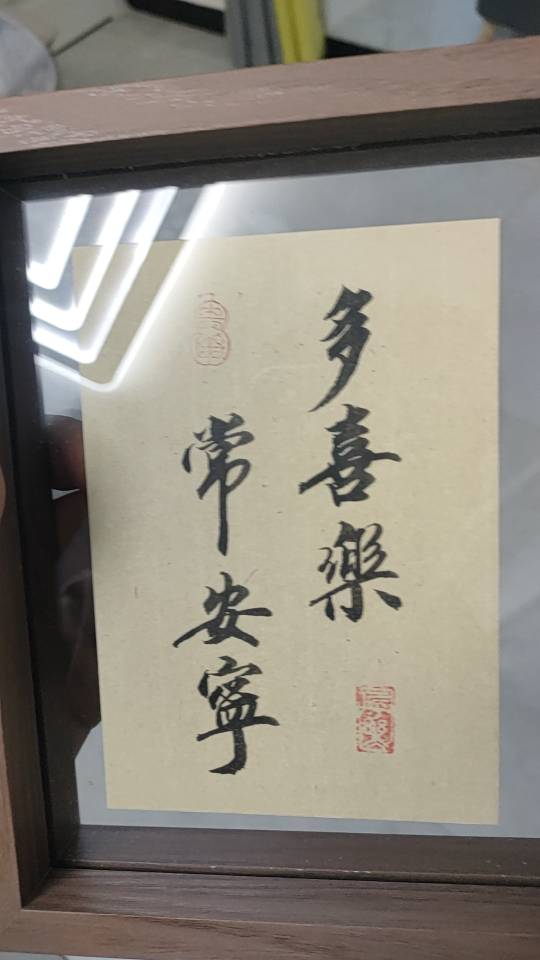 多喜樂
常安寧